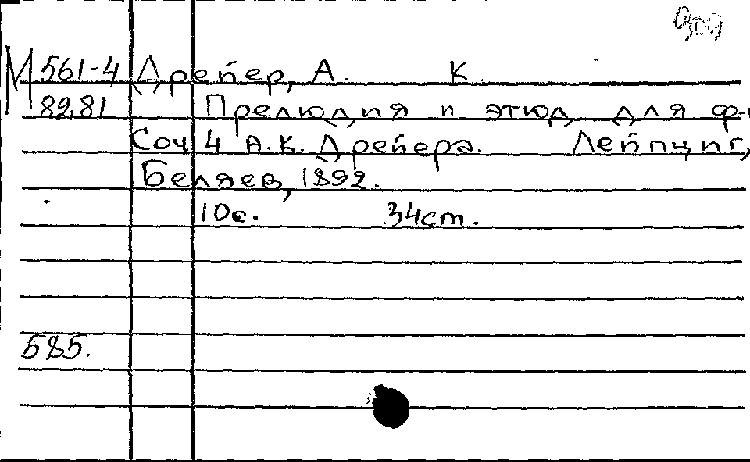 М 561-4 Дрейер, А. К
8281 Прелюдия и этюд для ф-
Соч 4 А.К. Дрейера. Лейпциг,
Беляев, 1892.
10с. 34cm.
585.